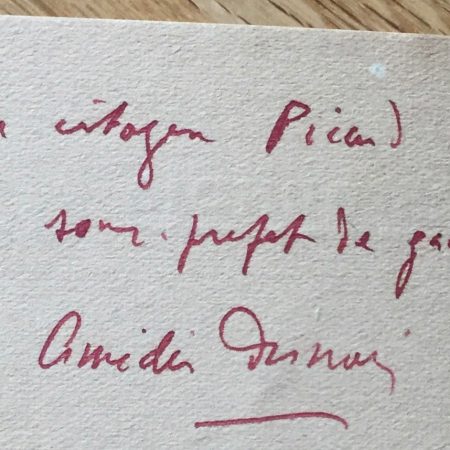 citoyen Picard
sous-préfet de ga
Amédée